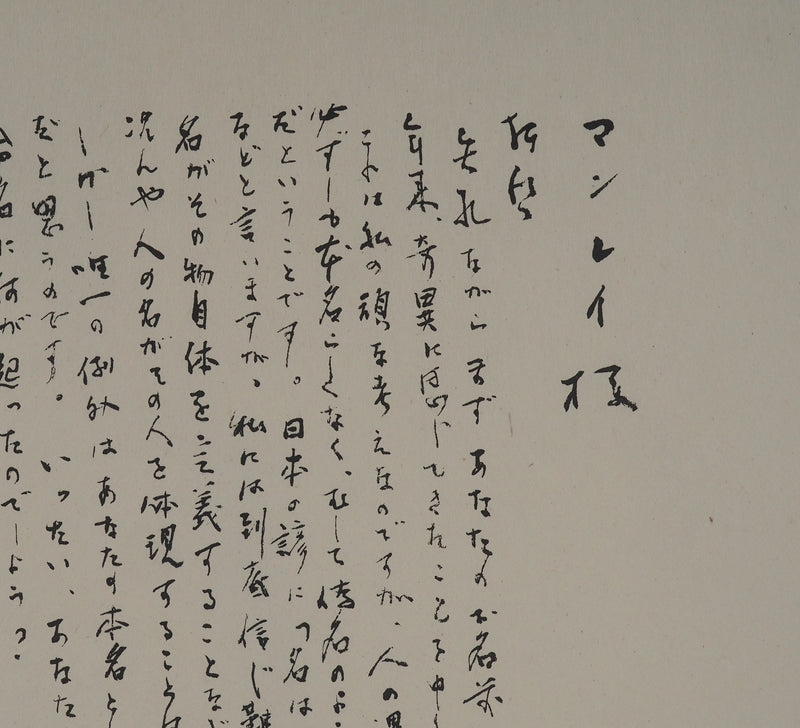 マンレイ様
拝啓
失礼ながらまずあなたのお名前
年来、奇異に感じてきたことを申し
これは私の頑な考えなのですが、人の
必ずしも本名らしくなく、むしろ偽名のよう
だということです。日本の諺に「名は
などと言いますが、私には到底信じ難
名がその物自体を定義することなど
況んや人の名がその人を体現することは
しかし唯一の例外はあなたの本名と
だと思うのです。いったい、あなた
名に何が起ったのでしょう?